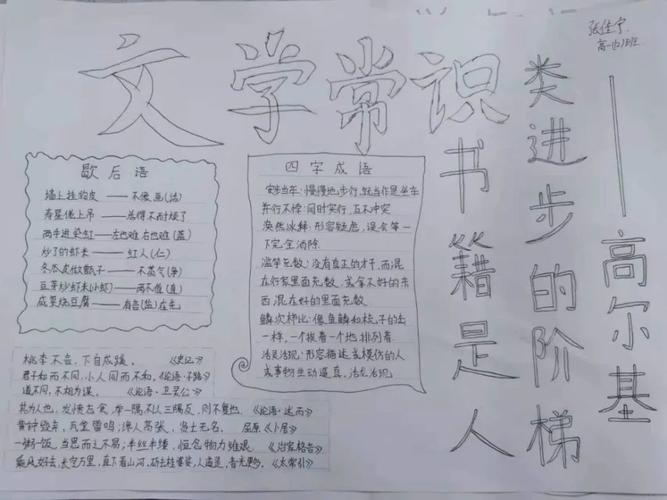 张佳宁
高一(2)班
文学常识
歇后语
墙上挂狗皮——不像画(话)
寿星佬上吊——活得不耐烦了
两手进染缸——左也难右也难(蓝)
炒了的虾米——红人(仁)
冬瓜皮做甑子——不蒸气(争)
豆芽炒虾米(小虾)——两不值(直)
咸菜烧豆腐——有言(盐)在先
四字成语
安步当车:慢慢地步行,就当作是坐车
并行不悖:同时实行,互不冲突
涣然冰释:形容疑虑,误会等一
下完全消除
滥竽充数:没有真正的才干,而混
在行家里面充数,或拿不好的东
西混在好的里面充数
鳞次栉比:像鱼鳞和梳子的齿
一样,一个挨着一个地排列着
活灵活现:形容描述或模仿的人
或事物生动逼真,活灵活现
桃李不言,下自成蹊。《史记》
君子和而不同,小人同而不和。《论语·子路》
道不同,不相为谋。《论语·卫灵公》
其为人也,发愤忘食,举一隅不以三隅反,则不复也。《论语·述而》
黄钟毁弃,瓦釜雷鸣;谗人高张,贤士无名。屈原《卜居》
一粥一饭,当思来之不易;半丝半缕,恒念物力维艰《治家格言》
乘风好去,长空万里,直下看山河,斫去桂婆娑,人道是,清光更多。《太常引》
书籍是人
类进步的阶梯
——高尔基